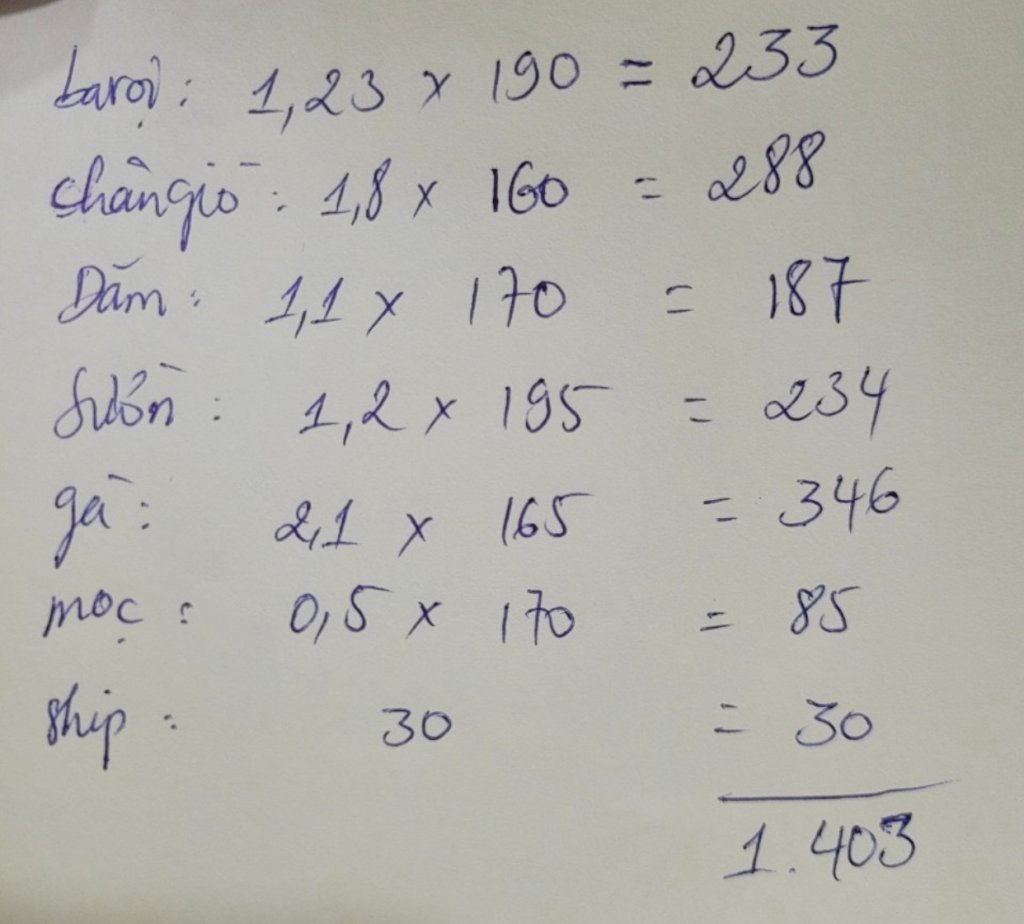 ba rọi: 1,23 x 190 = 233
chân giò: 1,8 x 160 = 288
Dăm: 1,1 x 170 = 187
Sườn: 1,2 x 195 = 234
gà: 2,1 x 165 = 346
mọc: 0,5 x 170 = 85
ship: 30 = 30
1.403